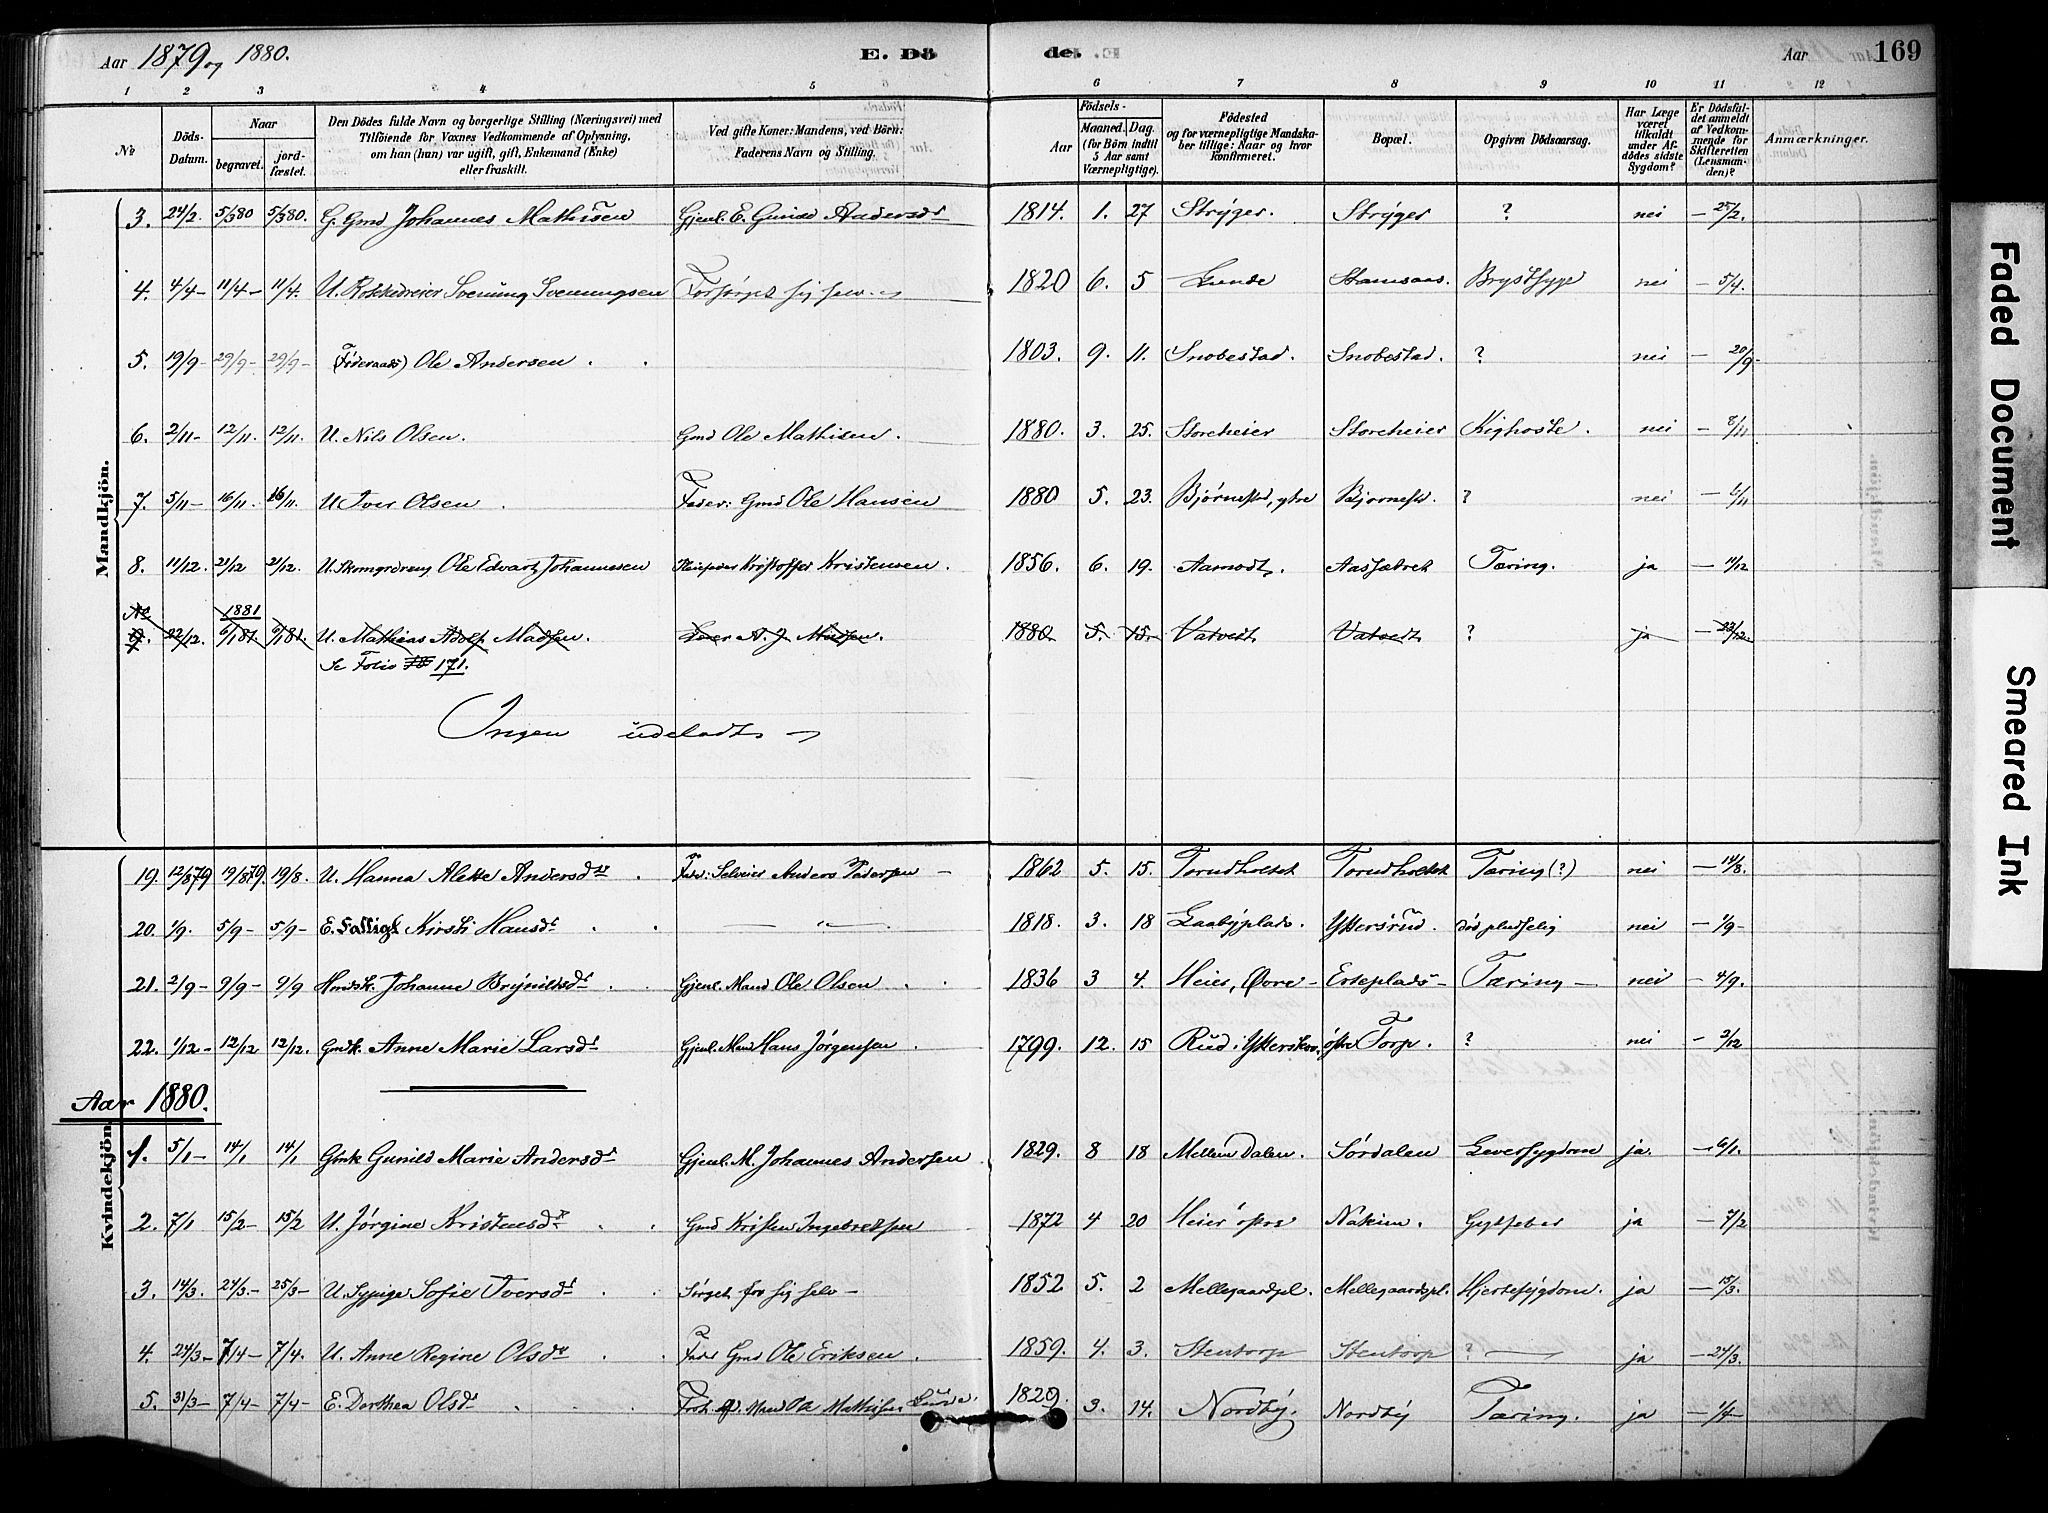 Aar 1879 og 1880. E. Dö de. Aar 169
1 2 3 4 5 6 7 8 9 10 11 12
No
Döds-Datum.
Naar
begravet. jordfæstet.
Den Dödes fulde Navn og borgerlige Stilling (Næringsvei) med
Tilföiende for Voxnes Vedkommende af Oplysning,
om han (hun) var ugift, gift, Enkemand (Enke)
eller fraskilt.
Ved gifte Koner: Mandens, ved Börn:
Faderens Navn og Stilling.
Födsels-
Aar Maaned. Dag.
(for Börn indtil
5 Aar samt
Værnepligtige).
Födested
og for værnepligtige Mandskaber tillige: Naar og hvor
konfirmeret.
Bopæl.
Opgiven Dödsaarsag.
Har Læge været tilkaldt under Afdödes sidste Sygdom?
Er Dödsfaldet anmeldt af Vedkommende for Skifteretten (Lensmanden)?
Anmærkninger.
Mandkjön.
3. 24/2. 5/3 80 5/3 80. G. Gmd Johannes Mathisen Gjenl. E. Gunild Andersdr 1814. 1. 27 Strýger. Strýger ? nei – 25/2.
4. 4/4– 11/4– 11/4. U. Rokkedreier Svenung Svenungsen Forsørget sig selv. 1820 6. 5 Lunde Stamsaas. Brystsyge nei – 5/4.
5. 19/9– 29/9– 29/9– (Føderaads) Ole Andersen . . 1803. 9. 11. Snobestad. Snobestad. ? nei – 20/9–
6. 2/11– 12/11. 12/11. U. Nils Olsen. Gmd Ole Mathisen. 1880. 3. 25. Storeheier Storeheier Kighoste. nei – 8/11
7. 5/11– 16/11. 16/11. U Iver Olsen . Fader: Gmd Ole Hansen 1880 5. 23. Bjørnestd, ytre Bjørnest. ? nei – 6/11
8. 11/12. 21/12 21/12. U. Skomgrdreng Ole Edvart Johannesen Kristoffer Kristensen. 1856. 6. 19. Aamodt. Aassætret Tæring. ja – 11/12
No 1881
9. 22/12. 6/1 81 6/1 81. U. Mathias Adolf Madsen. A. J. Madsen. 1880 5. 15. Vatvedt Vatvedt ? ja – 23/12.
Se Folio 171.
Ingen udeladt
19. 12/8 79 19/8 79. 19/8. U. Hanna Alette Andersdtr . Fad: Selveier Anders Pedersen – 1862 5. 15. Torudholtet Torudholtet Tæring (?) nei – 14/8.
20. 1/9. 5/9– 5/9– E. Fattigl Kirsti Hansdr . . – „ – 1818. 3. 18 Laabyplads. Yttersrud. død pludselig nei – 1/9–
21. 2/9– 9/9– 9/9 Hmdsk. Johanne Brýnildsdr . Gjenl. Mand Ole Olsen . . 1836 3 4. Heier, Øvre – Erteplads– Tæring – nei – 4/9.
22. 1/12– 12/12 12/12. Gmdk. Anne Marie Larsdr Gjenl. Mand Hans Jørgensen . 1799. 12. 15 Rud i Ytterskov. østre Torp. ? nei – 2/12
Aar 1880.
Kvindekjön.
1. 5/1– 14/1 14/1 Gmk Gunild Marie Andersdr Gjenl. M. Johannes Andersen 1829. 8 18 Mellem Dalen. Sørdalen Leversygdom ja. – 6/1.
2. 7/1 15/2– 15/2 U. Jørgine Kristensdr . . Gmd Kristen Ingebretsen 1872 4 20 Heier østre Nakim. Gylfeber ja – 7/2
3. 14/3. 24/3.– 25/3– U. Sypige Sofie Iversdr . . Sørget for sig selv – 1852 5. 2 Mellegaardpl. Mellegaardspl. Hjertesygdom. ja – 15/3.
4. 24/3– 7/4– 7/4. U. Anne Regine Olsdtr . . Fader Gmd Ole Eriksen . 1859. 4. 3. Stentorp Stentorp ? – ja – 24/3.
5. 31/3– 7/4– 7/4– E. Dorthea Olsdr . . . Mand Ole Mathisen Lunde. 1829. 3. 14. Nordbý. Nordbý Tæring. ja – 1/4–
Faded Document
Smeared Ink